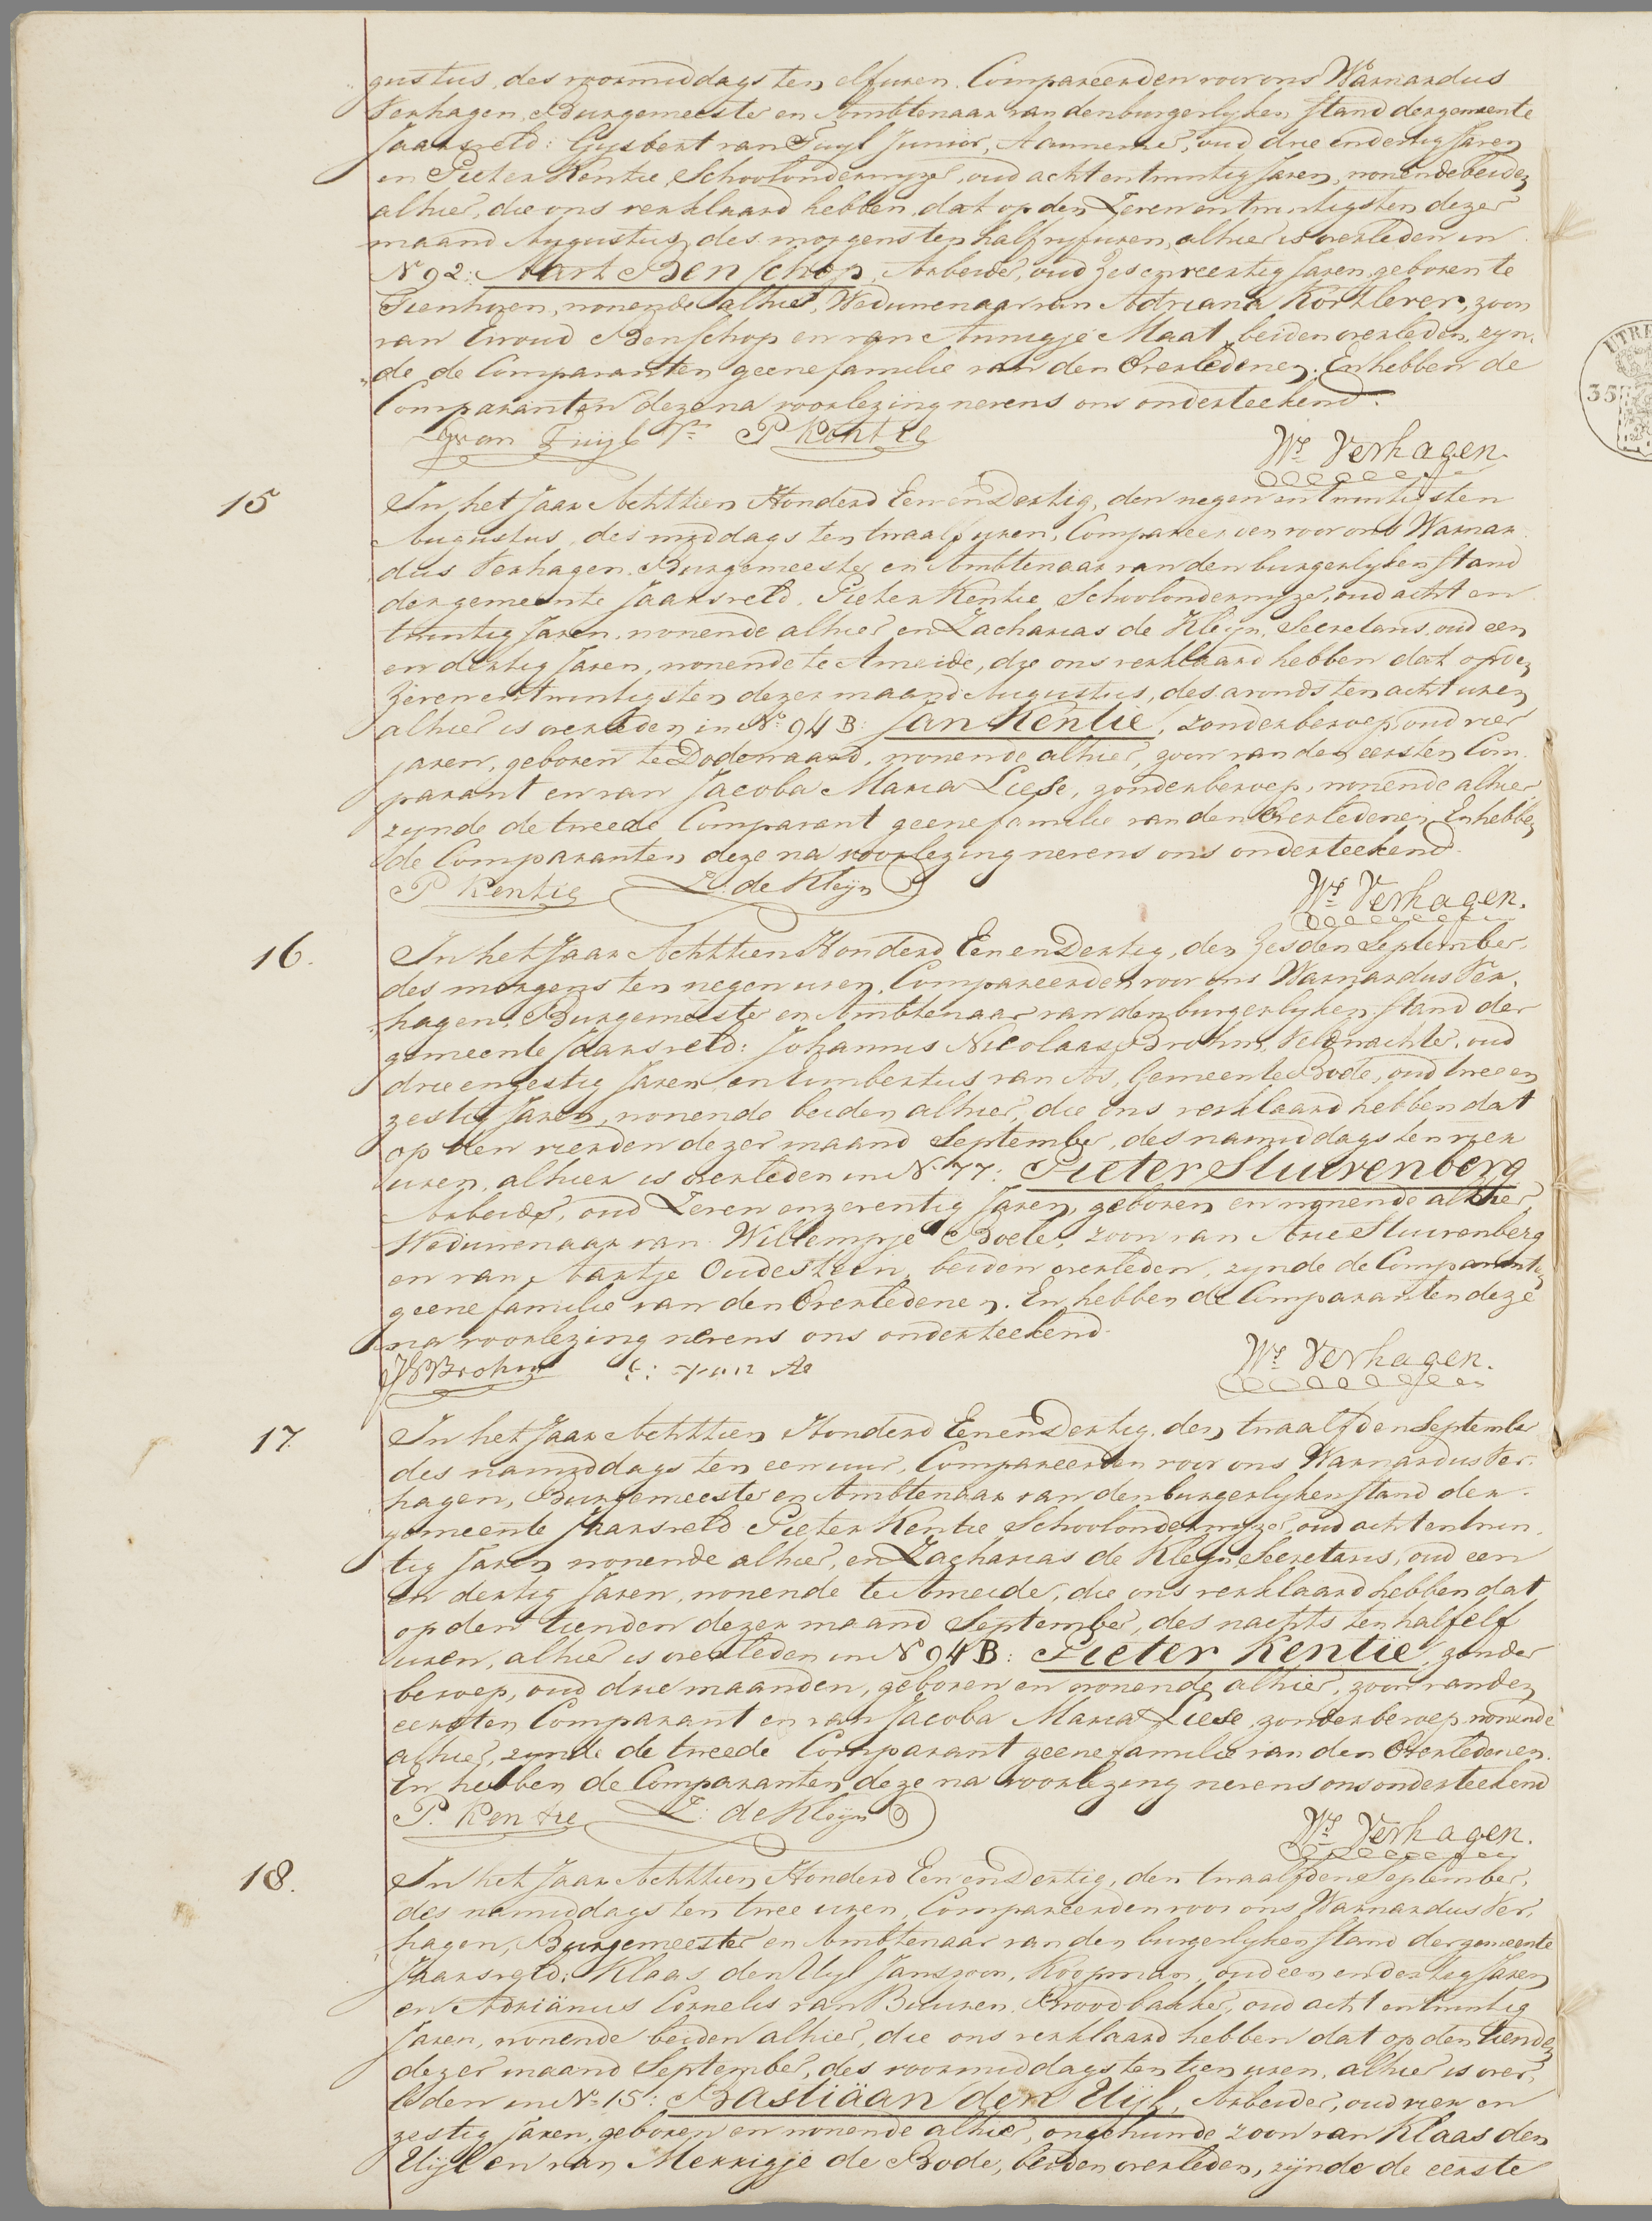 gustus, des voormiddags ten elf uren. Compareerden voor ons Warnardus
Verhagen, Burgemeester en Ambtenaar van den burgerlyken stand der gemeente
Jaarsveld: Gysbert van Tuyl Junior, Aannemer, oud drie en dertig Jaren
en Pieter Kentie, Schoolonderwyzer, oud acht en twintig Jaren, wonende beiden
alhier, die ons verklaard hebben, dat op den Zeven en twintigsten dezer
maand Augustus, des morgens ten half vyf uren, alhier is overleden in
No 92: Aart Benschop, Arbeider, oud Zes en veertig Jaren, geboren te
Tienhoven, wonende alhier, Weduwenaar van Adriana Kortlever, zoon
van Ewoud Benschop en van Annigje Maat, beiden overleden, zyn-
de de Comparanten geene familie van den Overledenen. En hebben de
Comparanten deze na voorlezing nevens ons onderteekend.
G van Tuijl Jr P Kentie
Ws Verhagen.
15
In het Jaar Achttien Honderd Een en Dertig, den negen en twintigsten
Augustus, des middags ten twaalf uren, Compareerden voor ons Warnar
dus Verhagen, Burgemeester en Ambtenaar van den burgerlyken stand
der gemeente Jaarsveld, Pieter Kentie, Schoolonderwyzer, oud acht en
twintig Jaren, wonende alhier en Zacharias de Kleyn, Secretaris, oud een
en dertig Jaren, wonende te Ameide, die ons verklaard hebben dat op den
Zeven en twintigsten dezer maand Augustus, des avonds ten acht uren
alhier is overleden in No 94 B: Jan Kentie, zonder beroep, oud vier
jaren, geboren te Dodewaard, wonende alhier, zoon van den eersten Com
parant en van Jacoba Maria Liese, zonder beroep, wonende alhier
zynde de tweede Comparant geene familie van den Overledenen. En hebben
de Comparanten deze na voorlezing nevens ons onderteekend.
P Kentie Z. de Kleijn
Ws Verhagen.
16.
In het Jaar Achttien Honderd Een en Dertig, den Zesden September,
des morgens ten negen uren, Compareerden voor ons Warnardus Ver-
hagen, Burgemeester en Ambtenaar van den burgerlyken stand der
gemeente Jaarsveld: Johannis Nicolaas Brohm, Veldwachter, oud
drie en zestig Jaren en Lumbertus van As, Gemeente Bode, oud twee en
zestig Jaren, wonende beiden alhier, die ons verklaard hebben dat
op den vierden dezer maand September, des namiddags ten vier
uren, alhier is overleden in No 77: Pieter Stuivenberg
Arbeider, oud Zeven en zeventig Jaren, geboren en wonende alhier,
Weduwenaar van Willempje Boele, zoon van Arie Stuivenberg
en van Aartje Oudesteen, beiden overleden, zynde de Comparanten
geene familie van den Overledenen. En hebben de Comparanten deze
na voorlezing nevens ons onderteekend.
JN Brohm L: van As
Ws Verhagen.
17.
In het Jaar Achttien Honderd Een en Dertig, den twaalfden September
des namiddags ten een uur, Compareerden voor ons Warnardus Ver-
hagen, Burgemeester en Ambtenaar van den burgerlyken stand der
gemeente Jaarsveld Pieter Kentie Schoolonderwyzer, oud acht en twin
tig Jaren wonende alhier, en Zacharias de Kleyn, Secretaris, oud een
en dertig Jaren, wonende te Ameide, die ons verklaard hebben dat
op den tienden dezer maand September, des nachts ten half elf
uren, alhier is overleden in No 94 B: Pieter Kentie, zonder
beroep, oud drie maanden, geboren en wonende alhier, zoon van den
eersten Comparant en van Jacoba Maria Liese, zonder beroep, wonende
alhier, zynde de tweede Comparant geene familie van den Overledenen.
En hebben de Comparanten deze na voorlezing nevens ons onderteekend
P. Kentie Z: de Kleijn
Ws Verhagen.
18.
In het Jaar Achttien Honderd Een en Dertig, den twaalfden September,
des namiddags ten twee uren, Compareerden voor ons Warnardus Ver-
hagen, Burgemeester en Ambtenaar van den burgerlyken stand der gemeente
Jaarsveld: Klaas den Uyl Janszoon, Koopman, oud een en dertig Jaren
en Adriänus Cornelis van Buuren, Broodbakker, oud acht en twintig
Jaren, wonende beiden alhier, die ons verklaard hebben dat op den tienden
dezer maand September, des voormiddags ten tien uren, alhier is over-
leden in No 15: Bastiäan den Uijl, Arbeider, oud vier en
zestig Jaren, geboren en wonende alhier, ongehuwde zoon van Klaas den
Uijl en van Merrigje de Bode, beiden overleden, zijnde de eerste
UTRE
35